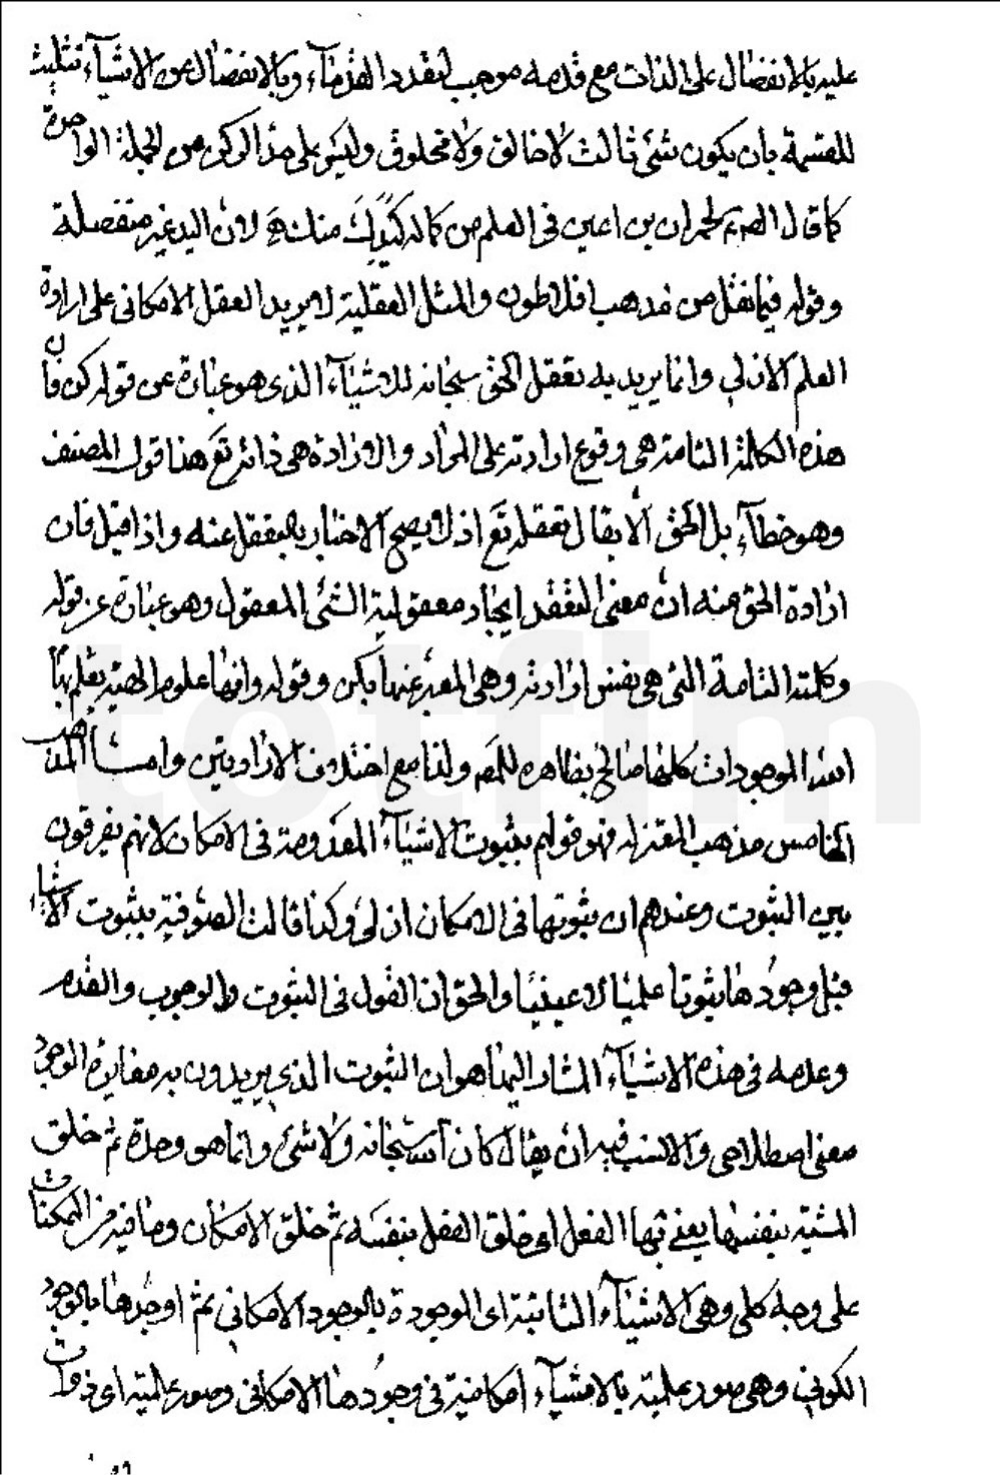 عليه بالانفصال على الذات مع قدمه موجب لتعدد القدماء وبالانفصال عن الاشياء تثليث
للقسمة بان يكون شئ ثالث لا خالق ولا مخلوق وليس على هذا الوكر من الجملة الواحدة
كما قال الصم لحمران بن اعين في العلم من كماله كيدك منك لان اليد غير منفصلة
وقوله فيما نقل من مذهب افلاطون والمثل العقلية لا يريد العقل الامكاني على ارادة
العلم الازلي وانما يريد به تعقل الحق سبحانه للاشياء الذي هو عبارة عن قوله كن فان
هذه الكلمة التامة هي وقوع ارادته على المراد والارادة هي ذاته تع هذا قول المصنف
وهو خطآء بل الحق الا يقال تعقله تع اذ لا يصح الاخبار بالتعقل عنه واذا قيل فان
ارادة الحق منه ان معنى التعقل ايجاد معقولية الشئ المعقول وهو عبارة عن قوله
وكلمته التامة التي هي نفس ارادته وهي المعبر عنها بكن وقوله وانها علوم الهية يعلم بها
الموجودات كلها صالح بظاهره للكم ولنا مع اختلاف الارادتين واما المذهب
الخامس مذهب المعتزلة فهو قولهم بثبوت الاشياء المعدومة في الامكان لانهم يفرقون
بين الثبوت وعندهم ان ثبوتها في الامكان ازلي وكذا قالت الصوفية بثبوت الاشياء
قبل وجودها ثبوتا علميا لا عينيا والحق ان القول في الثبوت والوجوب والقدم
وعدمه في هذه الاشياء المشار اليها هو ان الثبوت الذي يريدون به مغايرة الوجود
معنى اصطلاحي والانسب فيه ان يقال كان الله سبحانه ولا شئ وانما هو وحده ثم خلق
المشية بنفسها يعني بها الفعل اي خلق الفعل بنفسه ثم خلق الامكان وما فيه من الممكنات
على وجه كلي وهي الاشياء الثابتة اي الموجودة بالوجود الامكاني ثم اوجدها بالوجود
الكوني وهي صور علمية بالاشياء امكانية في وجودها الامكاني وصور علمية اي ذوات
totfim